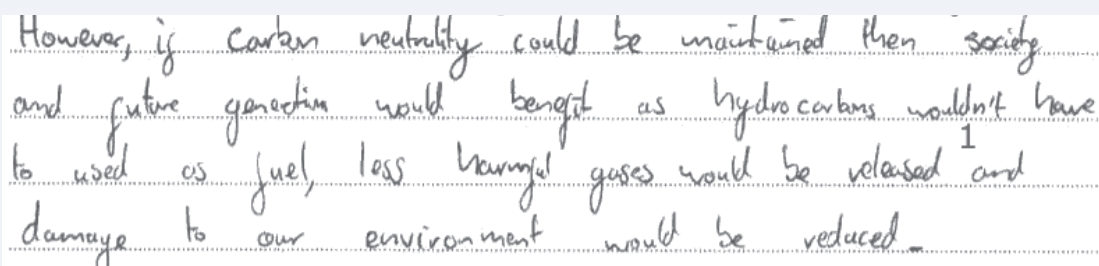 However, if carbon neutrality could be maintained then society
and future genection would benefit as hydrocarbons wouldn't have
1
to used as fuel, less harmful gases would be released and
damage to our environment would be reduced.